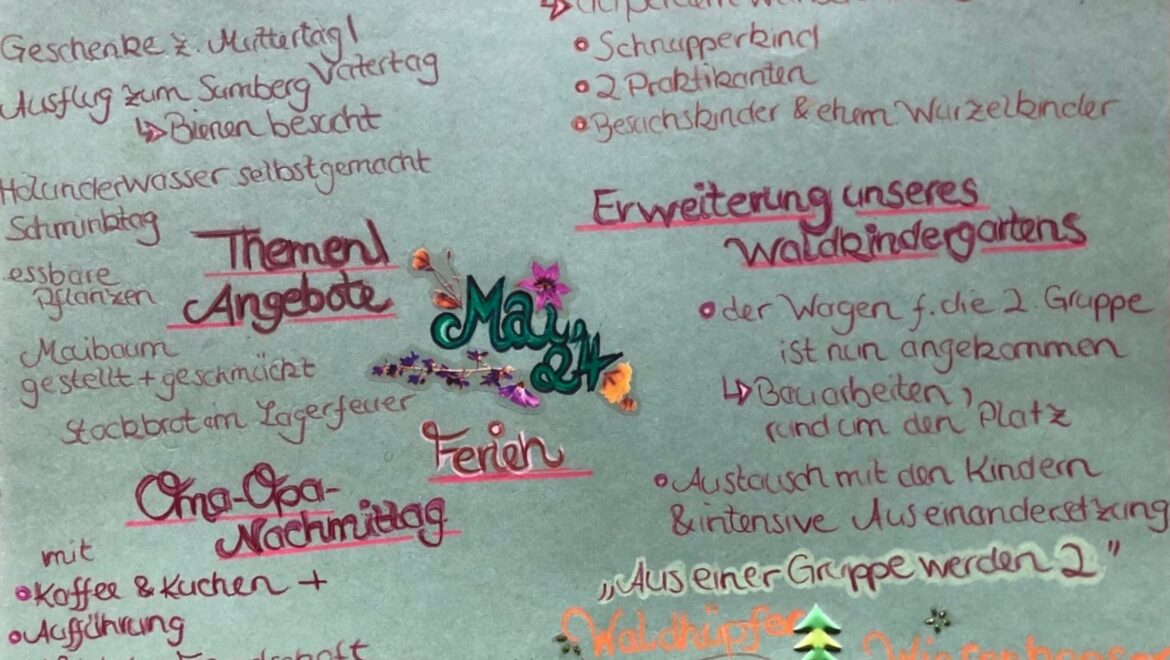 Geschenke z. Muttertag/
Vatertag
Ausflug zum Sumberg
↳ Bienen besucht
Holunderwasser selbstgemacht
Schminktag
essbare
Pflanzen
Themen/
Angebote
Maibaum
gestellt + geschmückt
Stockbrot am Lagerfeuer
Mai
24
Ferien
Oma-Opa-
Nachmittag
mit
• Kaffee & Kuchen +
• Aufführung
• Schnupperkind
• 2 Praktikanten
• Besuchskinder & ehem Wurzelkinder
Erweiterung unseres
Waldkindergartens
• der Wagen f. die 2. Gruppe
ist nun angekommen
↳ Bauarbeiten,
rund um den Platz
• Austausch mit den Kindern
& intensive Auseinandersetzung
„Aus einer Gruppe werden 2"
Waldhüpfer